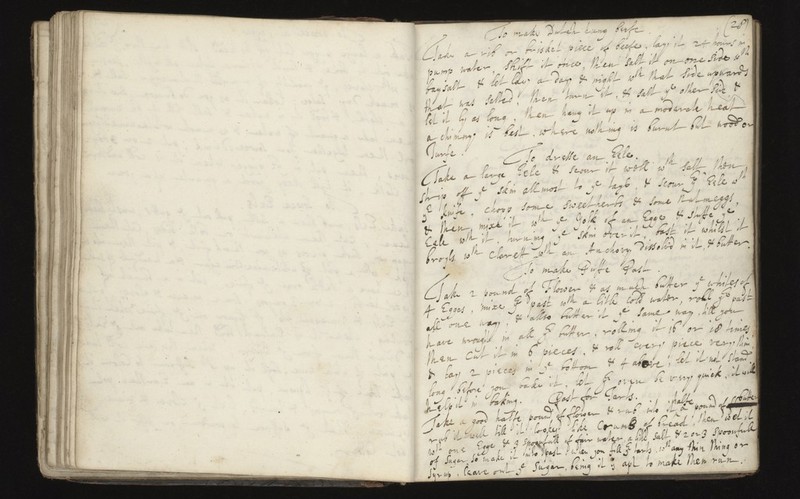 To make Dutch hung Beefe. (28)
Take a rib or brisket piece of beefe, lay it 24 hours in
pump water shift it once, then salt it on one side wth
baysalt & let ly a day & night wth that side upwards
that was salted, then turn it, & salt ye other side &
let it ly as long, then hang it up in a moderate heat
a chimny is best, where nothing is burnt but wood or
Turfe.
To dresse an Eele.
Take a large Eele & scour it well wth salt then
strip off ye skin allmost to ye tayle, & scour ye Eele wth
ye knife, chop some sweet herbs, & some Nutmegg,
& then mixe it wth ye Yolk of an Egge, & stuffe ye
Eele wth it, turning ye skin over it, bast it whilst it
broyls wth Clarett wth an Anchovy dissolv'd in it & butter.
To make Puffe Past
Take 2 pound of Flower & as much butter ye whites of
4 Eggs, mixe ye past wth a little cold water, roll ye past
all one way, & allso butter it ye same way, till you
have wrought in all ye butter, rolling it 16 or 18 times
then Cut it in 6 pieces, & roll every piece very thin
& lay 2 pieces in ye bottom & 4 above, let it not stand
long before you bake it, let ye oven be very quick, it will
in baking. Past for Tarts.
Take a good halfe pound of flower & rub into it halfe a pound of butter
rub it well till it lookes like Crumbs of bread, then wet it
wth one Egge & 3 spoonfulls of fair water a little salt & 2 or 3 spoonfulls
of sugar so make it into past when you fill ye tarts wth any thin thing or
syrup, leave out ye sugar, being it is apt to make them run.